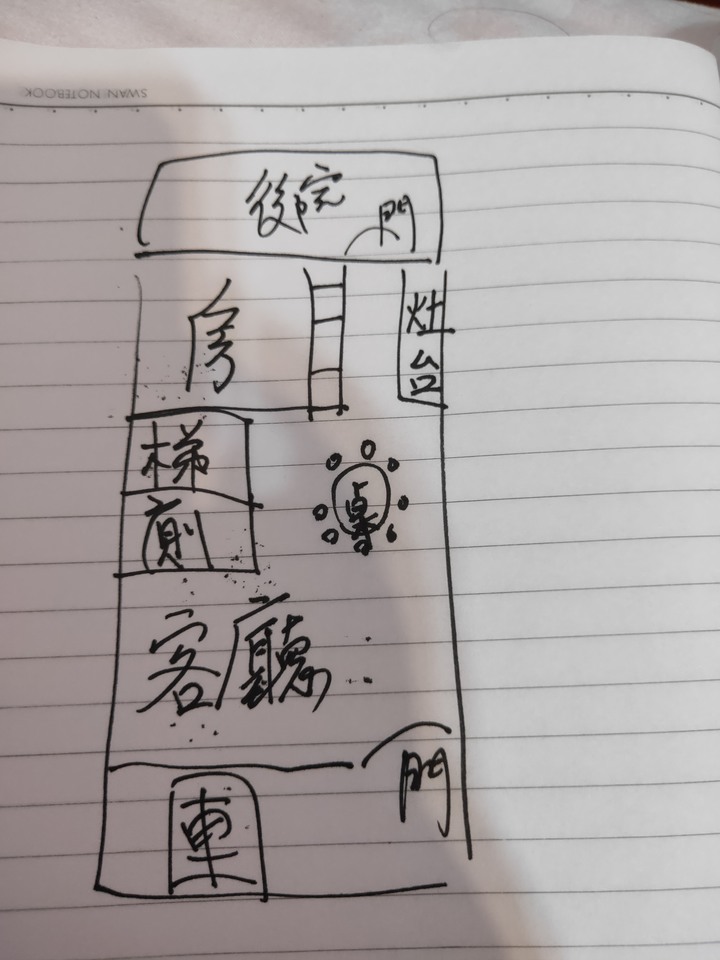 SWAN NOTEBOOK
後院
門
房
灶台
梯
桌
廁
客廳
門
車